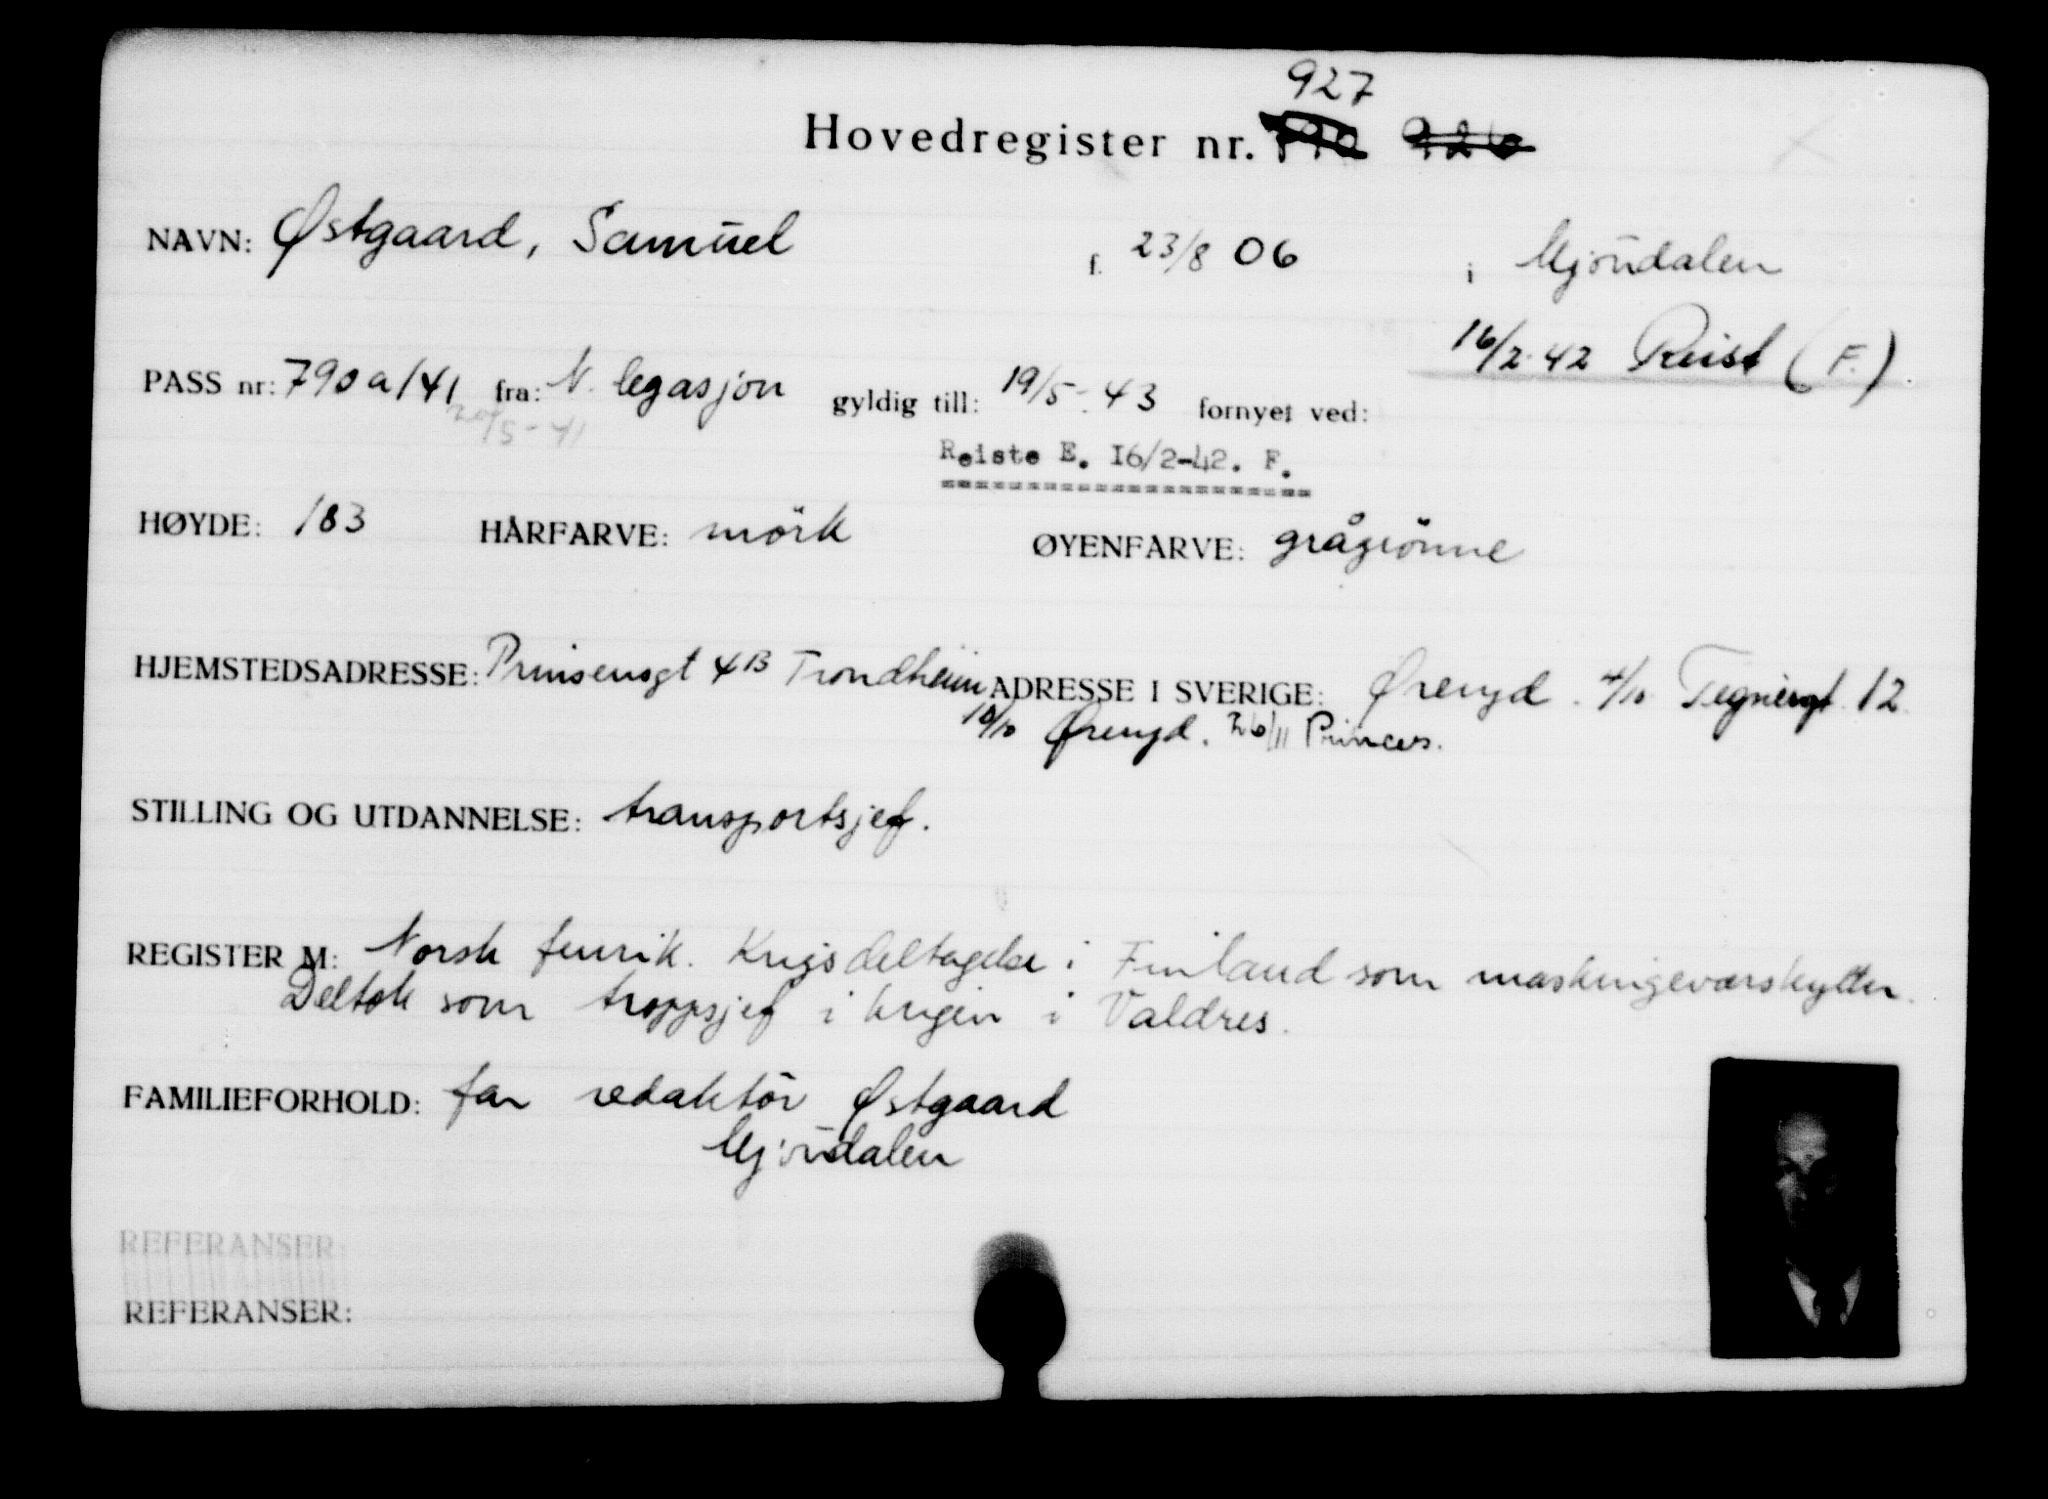 927
Hovedregister nr. 926
NAVN: Østgaard, Samuel f. 23/8 06 i Mjöndalen
16/2-42 Reist (F.)
PASS nr: 790 a/41 fra: N. legasjon gyldig till: 19/5-43 fornyet ved:
20/5-41
Reiste E. I6/2-42. F.
HØYDE: 183 HÅRFARVE: mörk ØYENFARVE: grågrönne
HJEMSTEDSADRESSE: Prinsensgt 4B Trondheim ADRESSE I SVERIGE: Ørenyd. 4/10 Tegnérgt. 12
10/10 Ørenyd. 26/11 Princess.
STILLING OG UTDANNELSE: transportsjef.
REGISTER M: Norsk fenrik. Krigsdeltagelse i Finland som maskingeværskytter.
Deltok som troppsjef i krigen i Valdres.
FAMILIEFORHOLD: far redaktör Østgaard
Mjöndalen
REFERANSER:
REFERANSER: